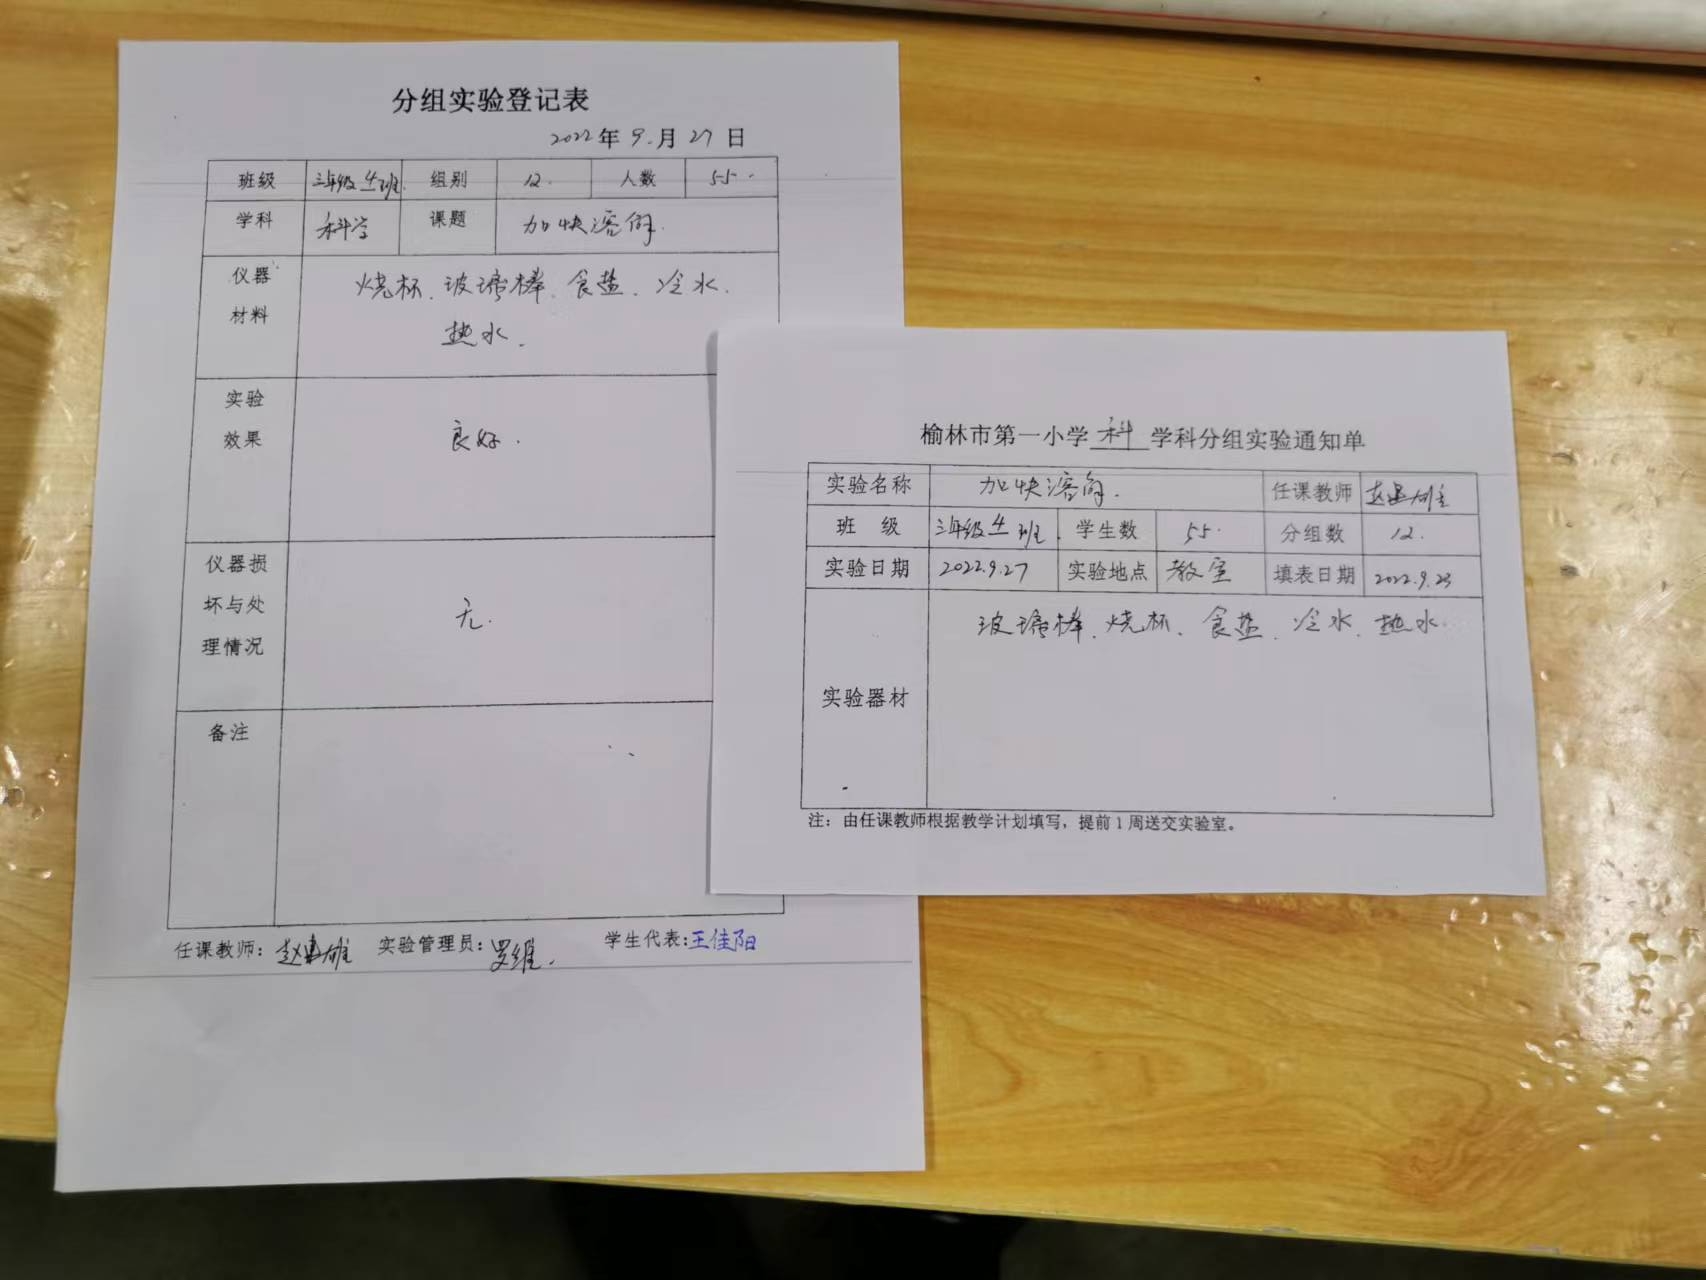 分组实验登记表
2022年9.月27日
班级 三年级4班. 组别 12. 人数 55.
学科 科学 课题 加快溶解.
仪器材料 烧杯、玻璃棒、食盐、冷水、
热水.
实验效果 良好.
仪器损坏与处理情况 无.
备注
任课教师: 实验管理员:罗维. 学生代表:王佳阳
榆林市第一小学科学科分组实验通知单
实验名称 加快溶解. 任课教师
班级 三年级4班. 学生数 55. 分组数 12.
实验日期 2022.9.27 实验地点 教室 填表日期 2022.9.23
实验器材 玻璃棒、烧杯、食盐、冷水、热水.
注：由任课教师根据教学计划填写，提前1周送交实验室。